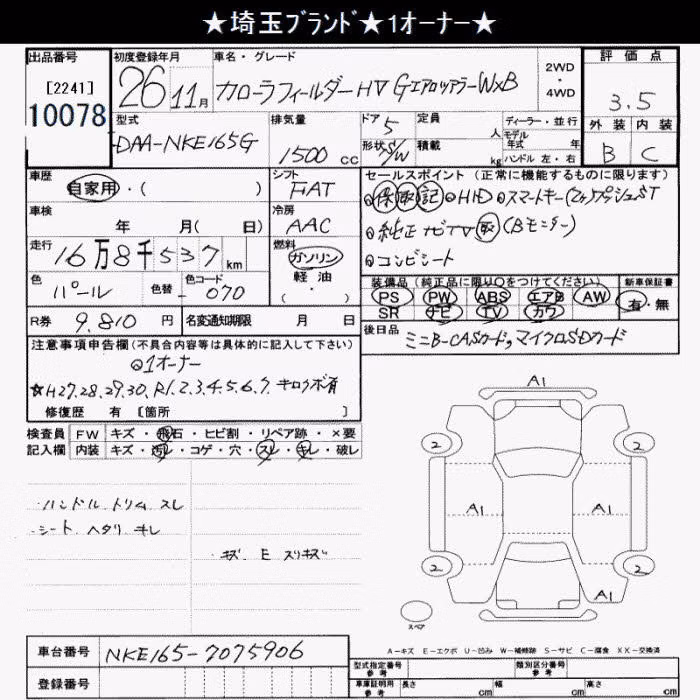 ★埼玉ﾌﾞﾗﾝﾄﾞ★1オーナー★
出品番号
[2241]
10078
初度登録年月
26年 11月
車名・グレード
カローラフィールダーHV GエアロツアラーW×B
2WD
・
4WD
評価点
3.5
外装 内装
B C
型式
DAA-NKE165G
排気量
1500 cc
ドア 5
形状 S/W
定員 人
積載 kg
ディーラー・並行
モデル年式 年
ハンドル 左・右
車歴
自家用・( )
シフト
FAT
車検
年 月( 日)
冷房
AAC
走行
16万8千537 km
燃料
ガソリン
軽油
・( )
色
パール
色替
-
色コード
070
R券 9,810 円
名変通知期限 月 日
セールスポイント (正常に機能するものに限ります)
◎保取記 ◎HID ◎スマートキー(2ヶ)プッシュST
◎純正ナビTV取(Bモニター)
◎コンビシート
装備品(純正品に限り○をつけてください)
PS PW ABS エアB AW
SR ナビ TV カワ
新車保証書
有・無
後日品
ミニB-CASカード,マイクロSDカード
注意事項申告欄(不具合内容等は具体的に記入して下さい)
◎1オーナー
☆H27.28.29.30.R1.2.3.4.5.6.7.キロクボ有
修復歴 有 [箇所 ]
検査員記入欄
FW キズ・飛石・ヒビ割・リペア跡・×要
内装 キズ・汚レ・コゲ・穴・スレ・キレ・破レ
・ハンドル トリム スレ
・シート ヘタリ キレ
・キズ E スリキズ
A1
2
2
A1
A1
2
2
A1
スペア
A-キズ E-エクボ U-凹み W-補修跡 S-サビ C-腐食 XX-交換済
車台番号
NKE165-7075906
登録番号
型式指定番号 参考
類別区分番号 参考
車庫証明用 参考
長さ cm
幅 cm
高さ cm